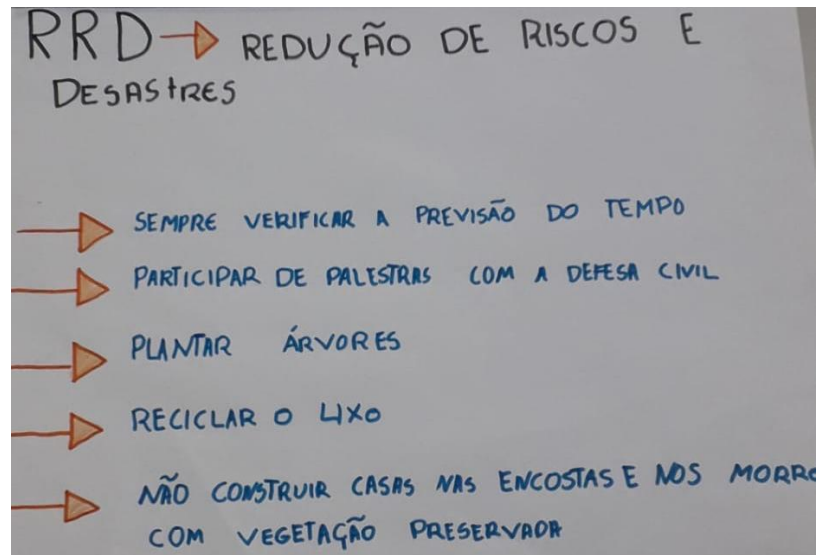 RRD → REDUÇÃO DE RISCOS E
DESASTRES
SEMPRE VERIFICAR A PREVISÃO DO TEMPO
PARTICIPAR DE PALESTRAS COM A DEFESA CIVIL
PLANTAR ÁRVORES
RECICLAR O LIXO
NÃO CONSTRUIR CASAS NAS ENCOSTAS E NOS MORRO
COM VEGETAÇÃO PRESERVADA